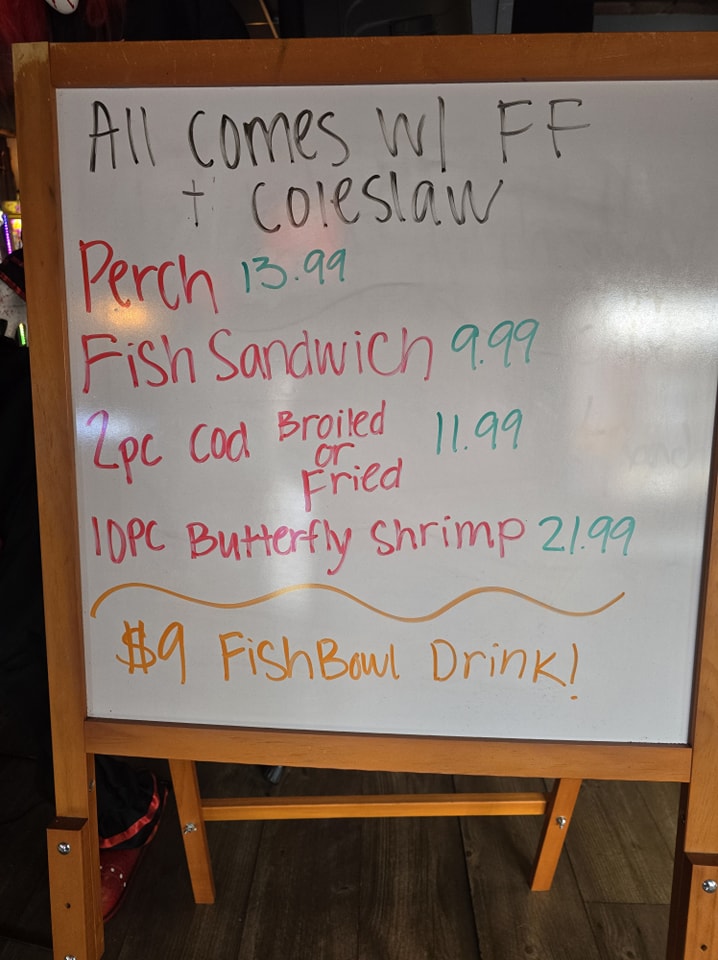 All comes w/ FF
+ coleslaw
Perch 13.99
Fish Sandwich 9.99
2pc cod Broiled or Fried 11.99
10pc Butterfly shrimp 21.99
$9 FishBowl Drink!